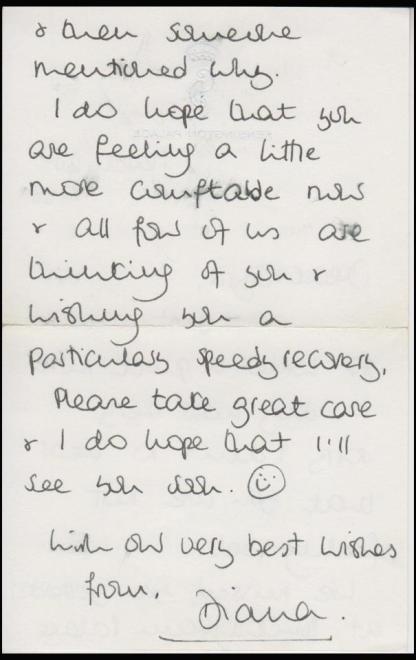 & then someone
mentioned why.
I do hope that you
are feeling a little
more comftable now
& all four of us are
thinking of you &
wishing you a
particulary speedy recovery.
Please take great care
& I do hope that I'll
see you soon.
With our very best wishes
from,
Diana.